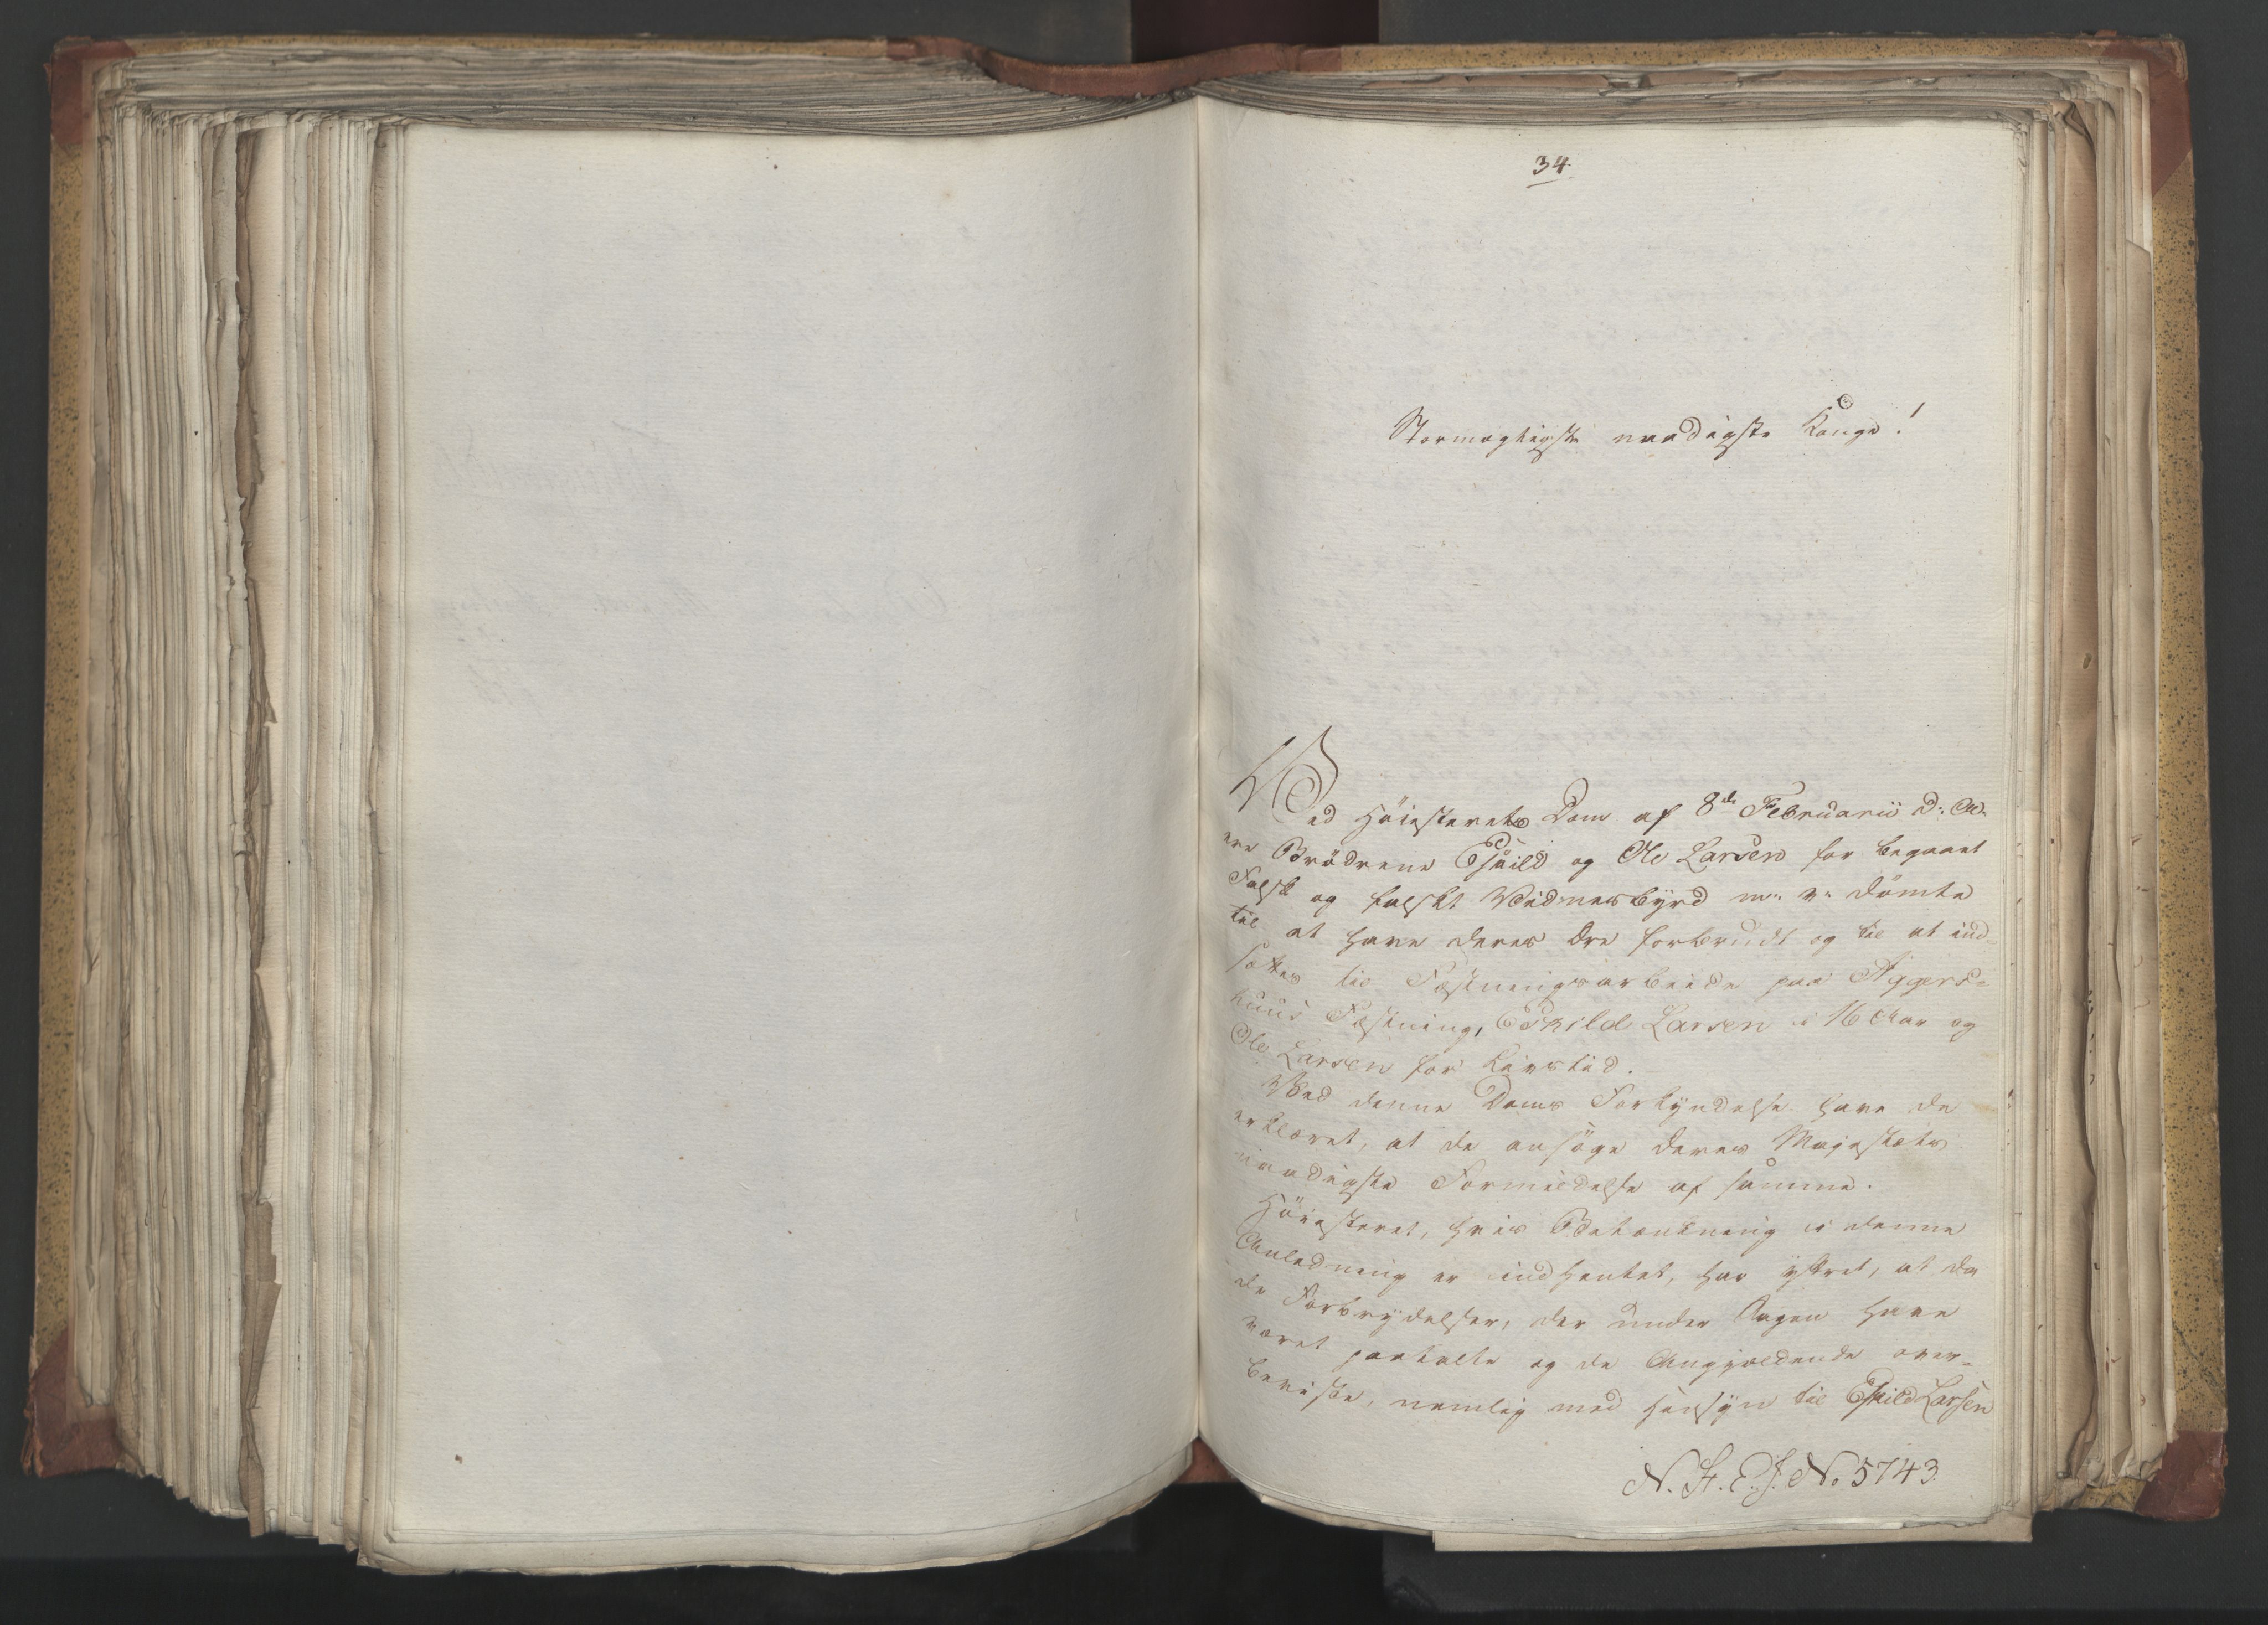 34.
Stormægtigste naadigste Konge!
Ved Höiesterets Dom af 8de Februarii d: A.
ere Brödrene Eskild og Ole Larsen for begaaet
Falsk og falskt Vidnesbyrd m: v: dömte
til at have deres Ære forbrudt og til at ind-
sættes til Fæstningsarbeide paa Aggers-
huus Fæstning, Eskild Larsen i 16 Aar og
Ole Larsen for Livstid.
Ved denne Doms Forkyndelse have de
erklæret, at de ansöge Deres Majestæts
naadigste Formildelse af samme.
Höiesteret, hvis Betænkning i denne
Anledning er indhentet, har yttret, at da
de Forbrydelser, der under Sagen have
været paatalte og de Angjældende over-
beviste, nemlig med Hensyn til Eskild Larsen
N. H. E. J. No 5743.